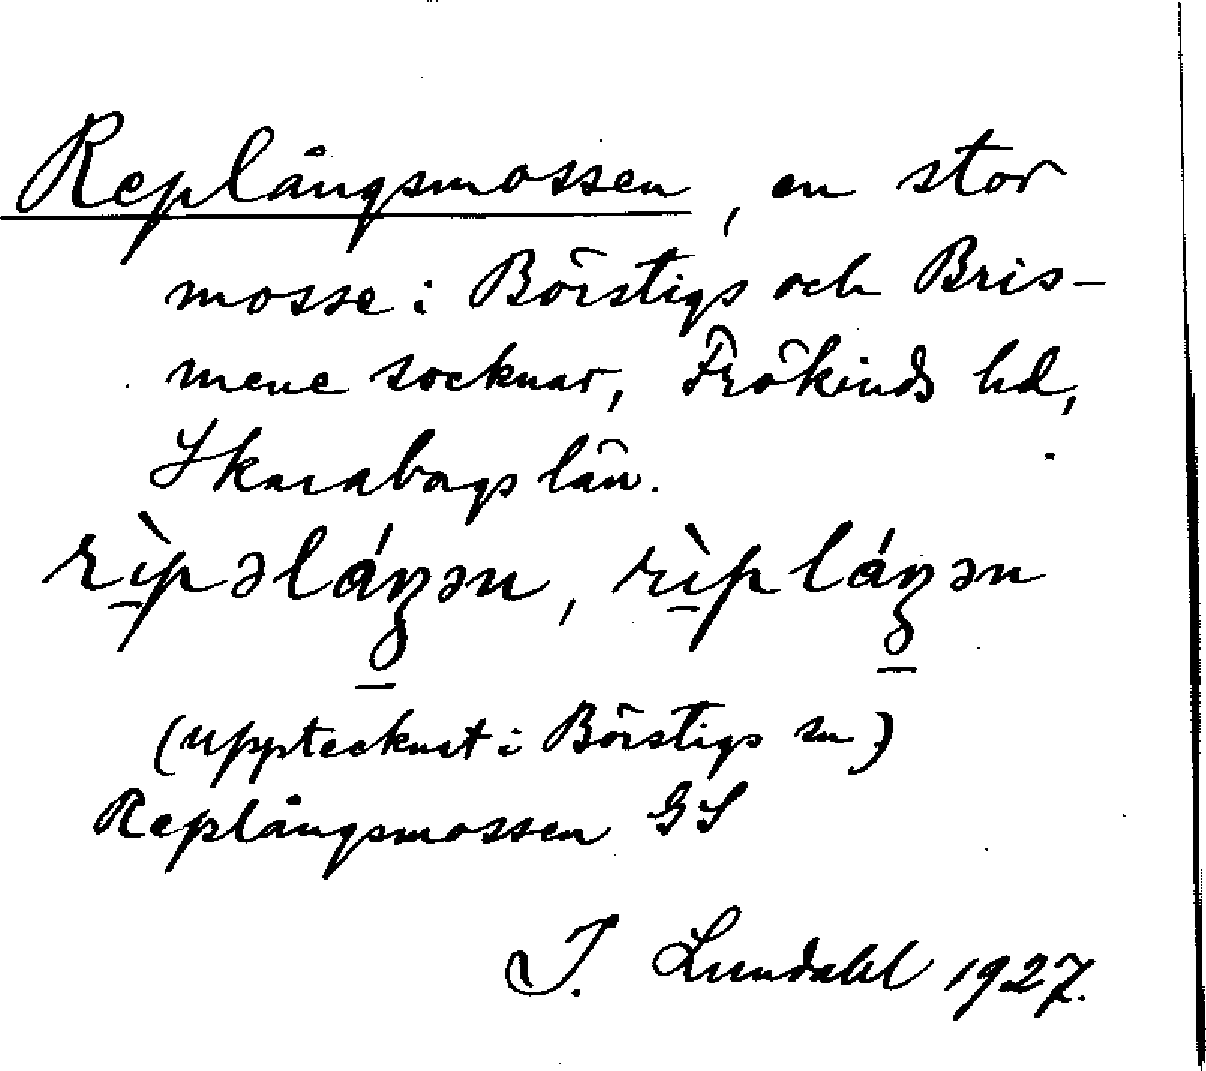 Replångsmossen, en stor
mosse i Börstigs och Bris-
mene socknar, Frökinds hd,
Skarabogs län.
rı̀pəláŋən, rı̀pláŋən
(upptecknat i Börstigs sn)
Replångsmossen GS
I. Lundahl 1927.